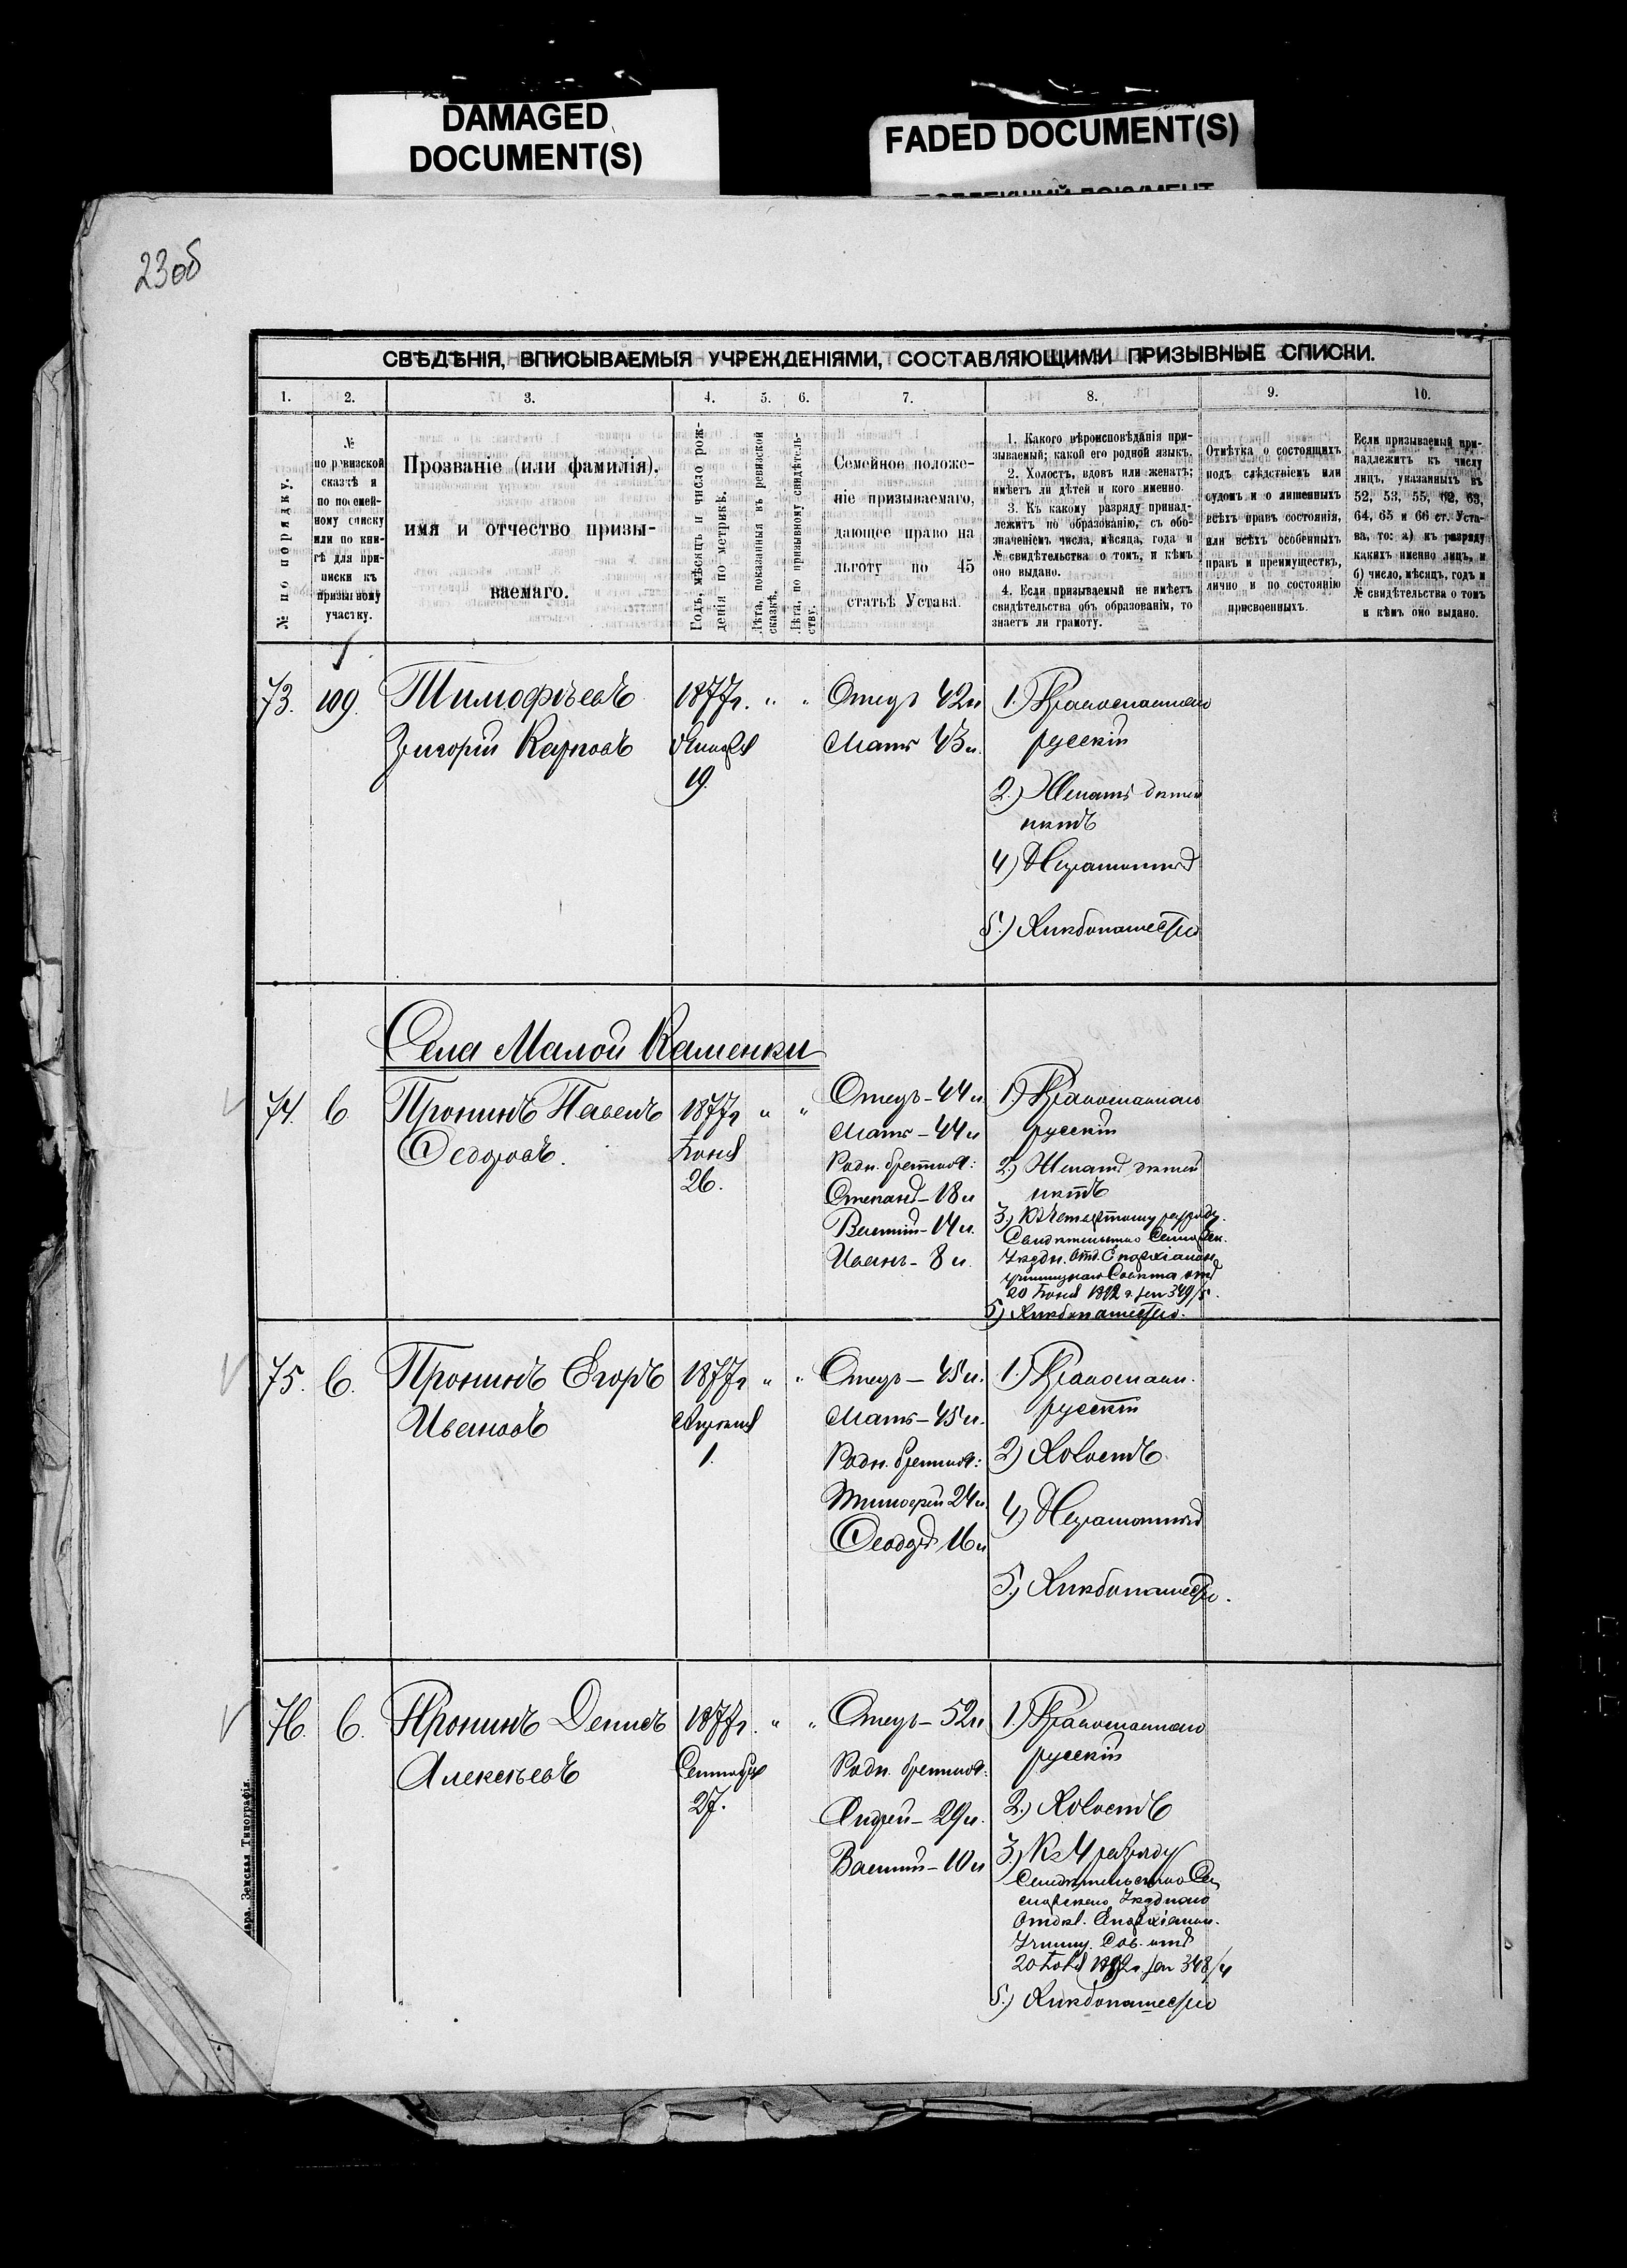 DAMAGED
DOCUMENT(S)
FADED DOCUMENT(S)
23об
СВѢДѢНІЯ, ВПИСЫВАЕМЫЯ УЧРЕЖДЕНІЯМИ, СОСТАВЛЯЮЩИМИ ПРИЗЫВНЫЕ СПИСКИ.
1. 2. 3. 4. 5. 6. 7. 8. 9. 10.
№ по порядку.
№
по ревизской
сказкѣ и
по посемей-
ному списку
или по кни-
гѣ для при-
писки къ
призывному
участку.
Прозваніе (или фамилія),
имя и отчество призы-
ваемаго.
Годъ, мѣсяцъ и число рож-
денія по метрикѣ.
Лѣта, показанныя въ ревизской
сказкѣ.
Лѣта, по призывному свидѣтель-
ству.
Семейное положе-
ніе призываемаго,
дающее право на
льготу по 45
статьѣ Устава.
1. Какого вѣроисповѣданія при-
зываемый; какой его родной языкъ.
2. Холостъ, вдовъ или женатъ;
имѣетъ ли дѣтей и кого именно.
3. Къ какому разряду принад-
лежитъ по образованію, съ обо-
значеніемъ числа, мѣсяца, года и
№ свидѣтельства о томъ, и кѣмъ
оно выдано.
4. Если призываемый не имѣетъ
свидѣтельства объ образованіи, то
знаетъ ли грамоту.
Отмѣтка о состоящихъ
подъ слѣдствіемъ или
судомъ и о лишенныхъ
всѣхъ правъ состоянія,
или всѣхъ особенныхъ
правъ и преимуществъ,
лично и по состоянію
присвоенныхъ.
Если призываемый при-
надлежитъ къ числу
лицъ, указанныхъ въ
52, 53, 55, 62, 63,
64, 65 и 66 ст. Уста-
ва, то: а) къ разряду
какихъ именно лицъ, и
б) число, мѣсяцъ, годъ и
№ свидѣтельства о томъ
и кѣмъ оно выдано.
73. 109. Тимофѣевъ 1877г. " " Отецъ 42л
Григорій Карповъ Января Мать 43л.
19.
1.) Православнаго
русскій
2.) Женатъ дѣтей
нѣтъ
4) Неграмотный
5.) Хлѣбопашество
Села Малой Каменки
74. 6 Пронинъ Павелъ 1877г " "
Ѳедоровъ. Іюня
26.
Отецъ - 44л
Мать - 44л
Родн. братьев:
Степанъ - 18л
Василій - 14л.
Иванъ - 8л.
1.) Православнаго
русскій
2.) Женатъ дѣтей
нѣтъ
3.) Къ четвертому разряду.
Свидѣтельство
Уѣздн. Отд. Епархіальн.
училищнаго Совѣта отъ
20 Іюня 1892 г. за № 349/5.
5) Хлѣбопашество.
75. 6. Пронинъ Егоръ 1877г " "
Ивановъ Апрѣля
1.
Отецъ - 45л.
Мать - 45л.
Родн. братьев:
Тимофей 24л.
Ѳеодоръ 16л
1.) Православн.
русскій
2) Холостъ.
4) Неграмотный
5.) Хлѣбопашество.
76. 6. Пронинъ Денисъ 1877г. " "
Алексѣевъ Сентября
27.
Отецъ - 52л
Родн. братьев:
Андрей - 29л.
Василій - 10л
1.) Православнаго
русскій
2.) Холостъ
3.) Къ 4 разряду
Свидѣтельство
Уѣзднаго
Отдѣл. Епархіальн.
Училищ. Сов. отъ
20 Іюня 1892г за № 348/4
5.) Хлѣбопашество
Земская Типографія.